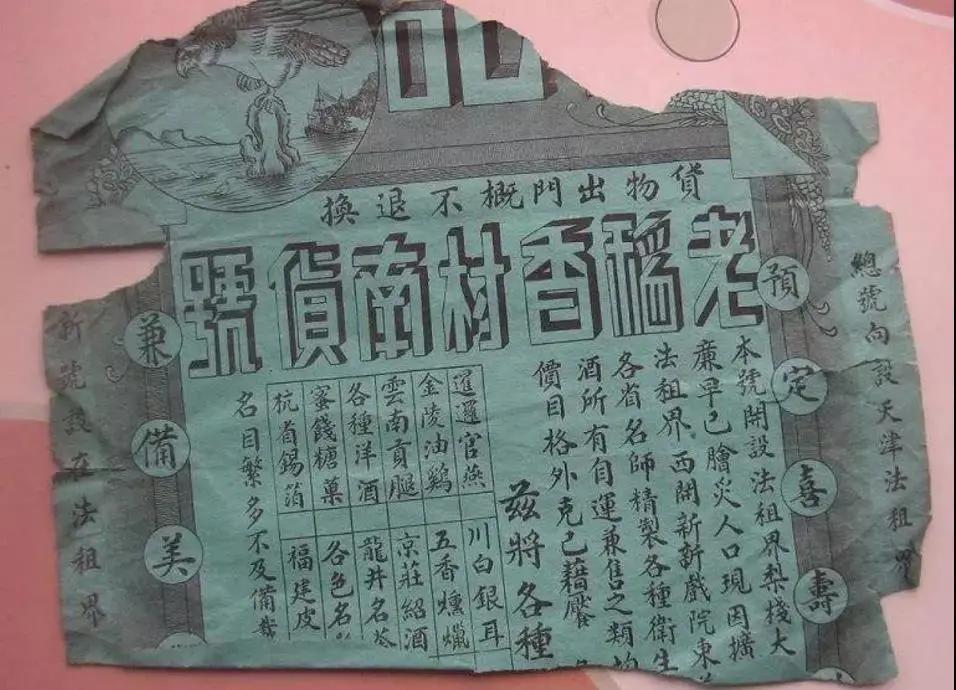 貨物出門概不退換
老稻香村南貨號
總號向設天津法租界
預定喜壽
本號開設法租界梨棧大
廉早已膾炙人口現因擴
法租界西開新新戲院東
各省名師精製各種衛生
酒所有自運兼售之類均
價目格外克己藉饜
茲將各種
暹邏官燕
川白銀耳
金陵油鷄
五香燻臘
雲南貢腿
京莊紹酒
各種洋酒
龍井名茶
蜜餞糖菓
各色名
杭省錫箔
福建皮
名目繁多不及備載
兼備美
新號設在法租界